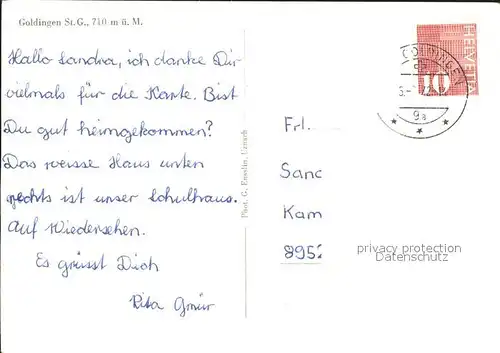 Goldingen St.G., 710 m ü. M.
Hallo Sandra, ich danke Dir
vielmals für die Karte. Bist
Du gut heimgekommen?
Das weisse Haus unten
rechts ist unser Schulhaus.
Auf Wiedersehen.
Es grüsst Dich
Rita Gmür
Phot. G. Ensslin, Uznach
HELVETIA
10
GOLDINGEN
9a
Frl.
Sanc
Kam
895
privacy protection
Datenschutz